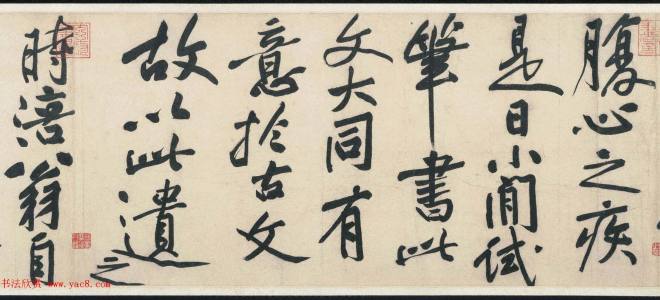 腹心之疾
是日小閒試
筆書此
文大同有
意於古文
故以此遺之
時涪翁自
书法欣赏 www.yac8.com